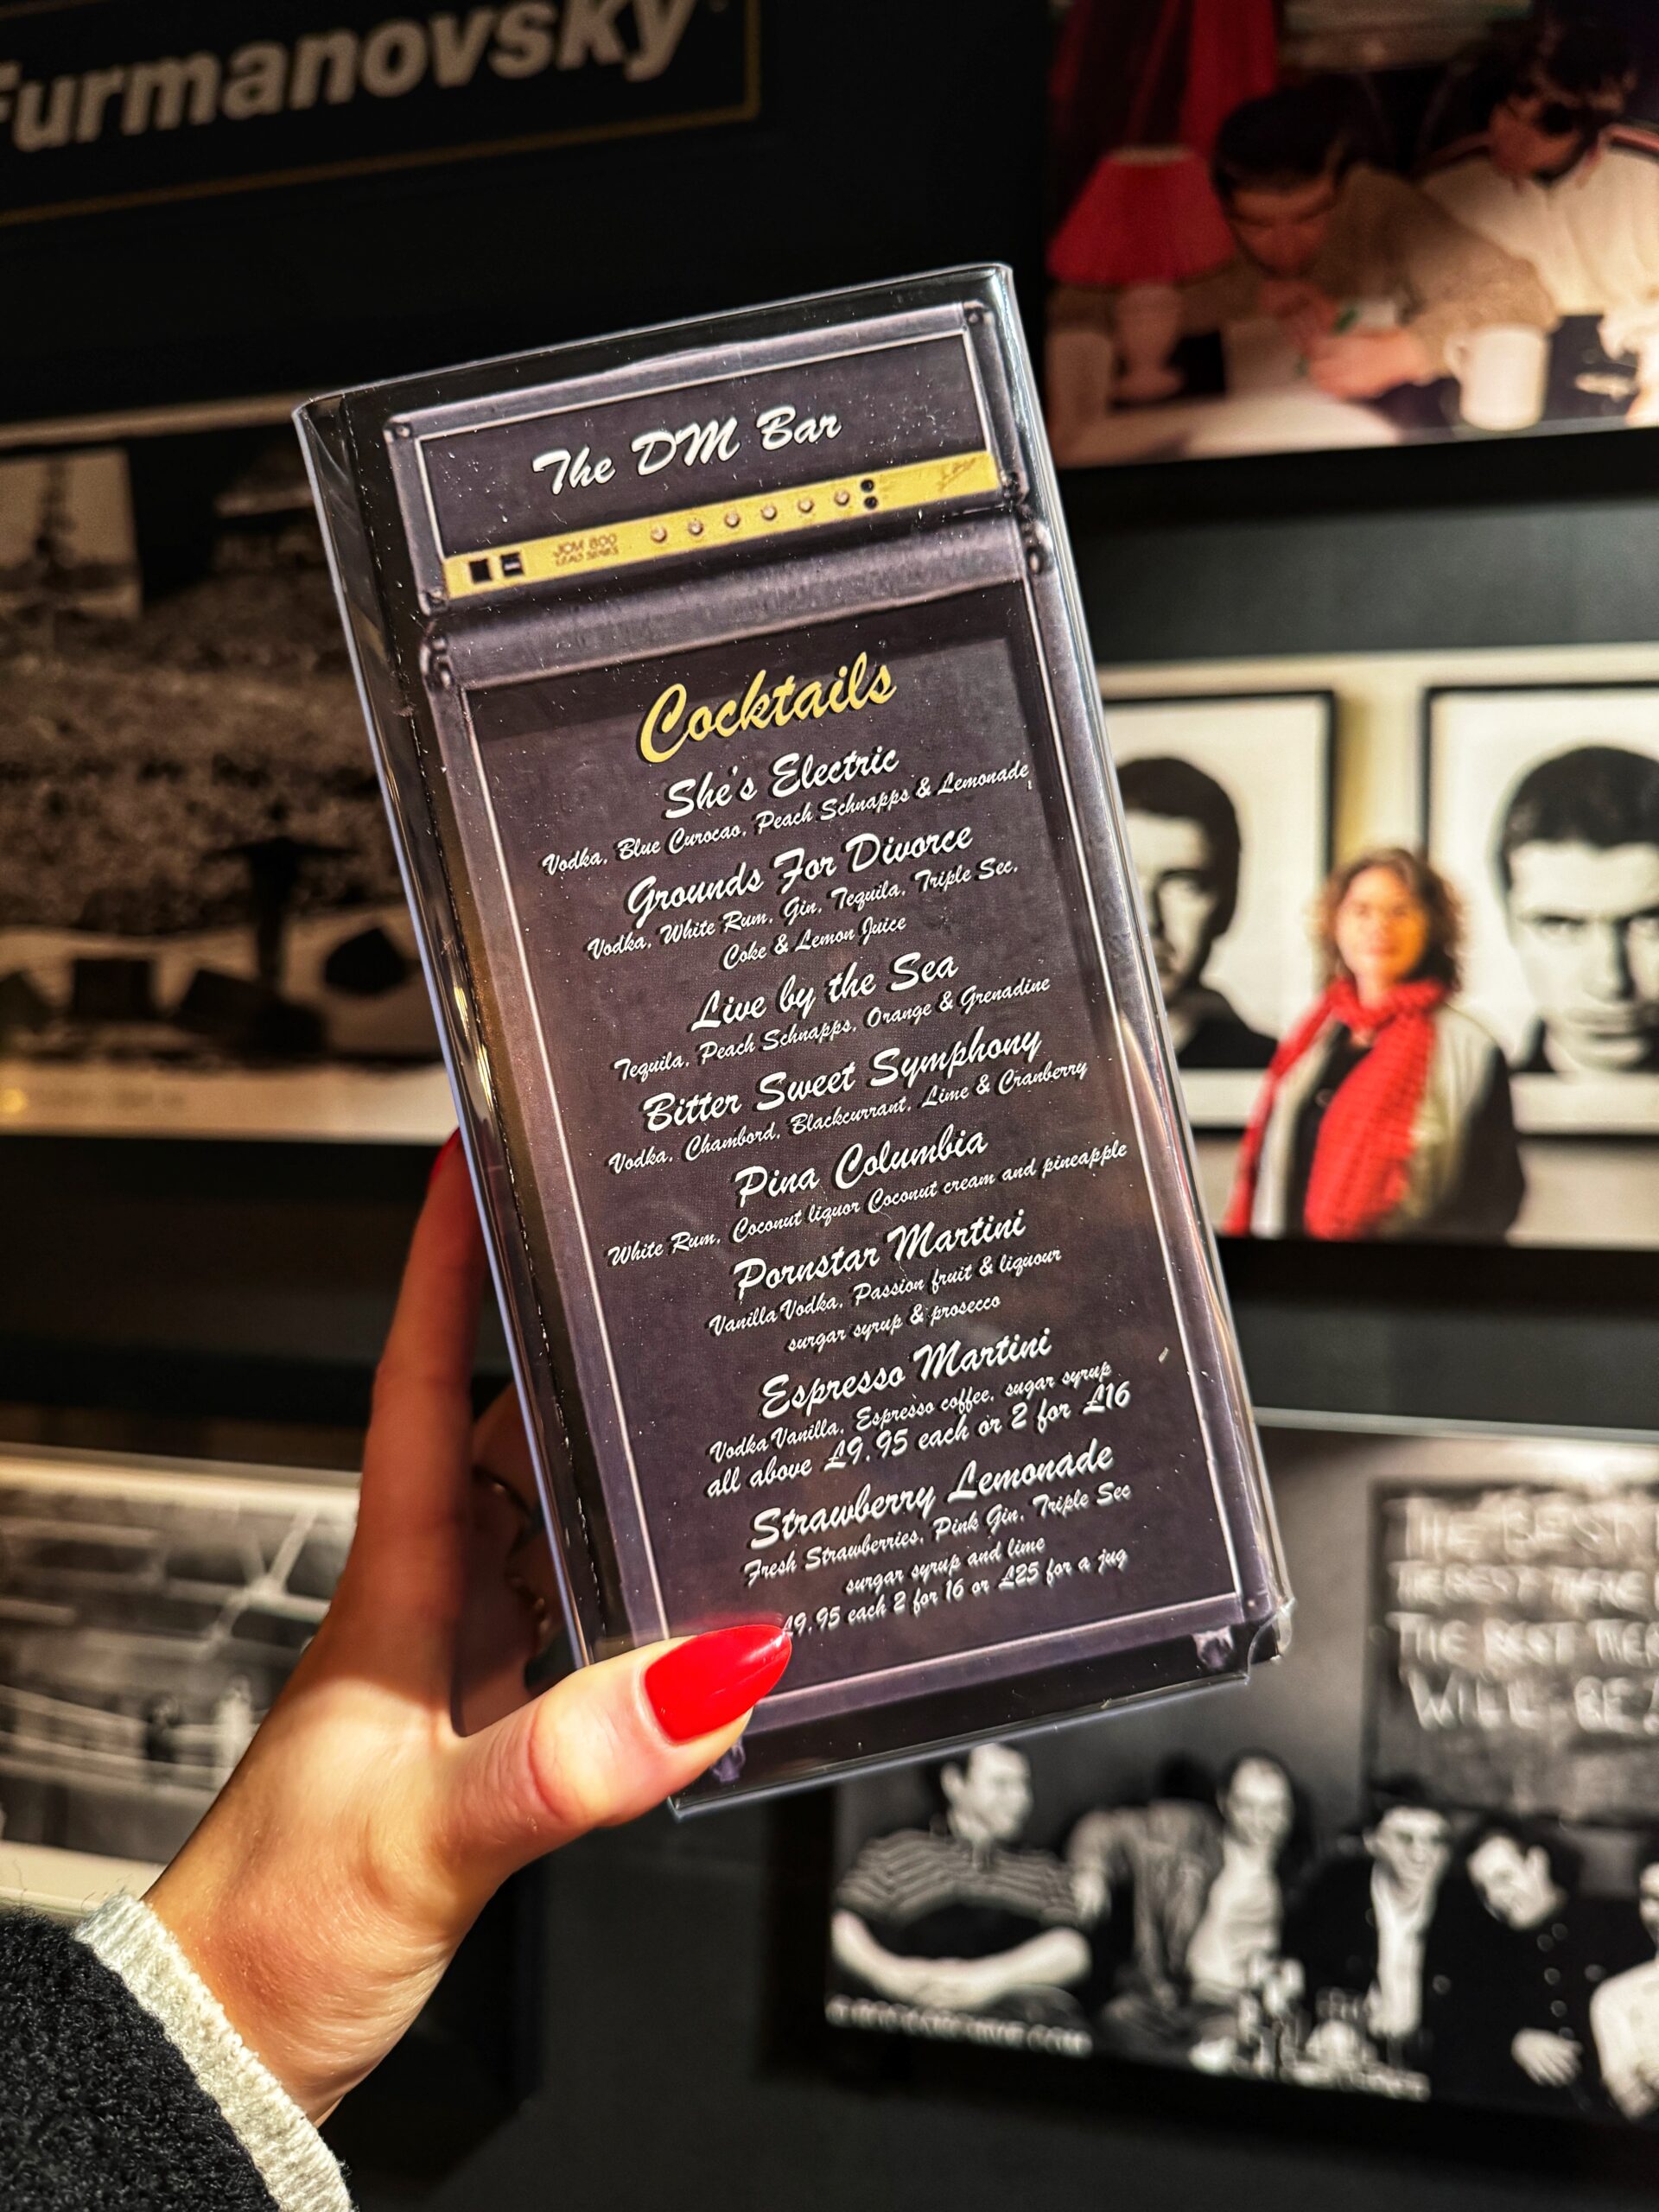 Furmanovsky
The DM Bar
JCM 800
LEAD SERIES
Cocktails
She's Electric
Vodka, Blue Curocao, Peach Schnapps & Lemonade
Grounds For Divorce
Vodka, White Rum, Gin, Tequila, Triple Sec,
Coke & Lemon Juice
Live by the Sea
Tequila, Peach Schnapps, Orange & Grenadine
Bitter Sweet Symphony
Vodka, Chambord, Blackcurrant, Lime & Cranberry
Pina Columbia
White Rum, Coconut liquor Coconut cream and pineapple
Pornstar Martini
Vanilla Vodka, Passion fruit & liquour
surgar syrup & prosecco
Espresso Martini
Vodka Vanilla, Espresso coffee, sugar syrup
all above £9.95 each or 2 for £16
Strawberry Lemonade
Fresh Strawberries, Pink Gin, Triple Sec
surgar syrup and lime
£9.95 each 2 for 16 or £25 for a jug
THE BEST
THE BEST THERE
THE BEST THERE
WILL BE